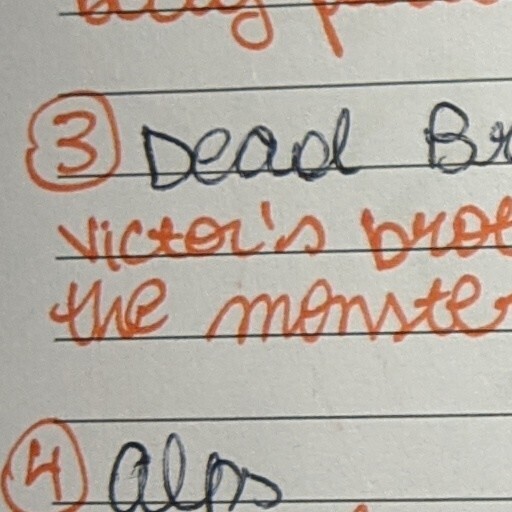 3 Dead Br
Victor's brot
the monste
4 Alps